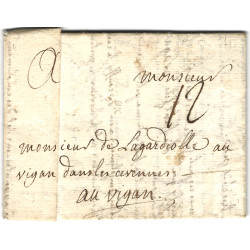 monsieur
12
monsieur de Lagardiolle au
vigan dans les cevennes
au vigan